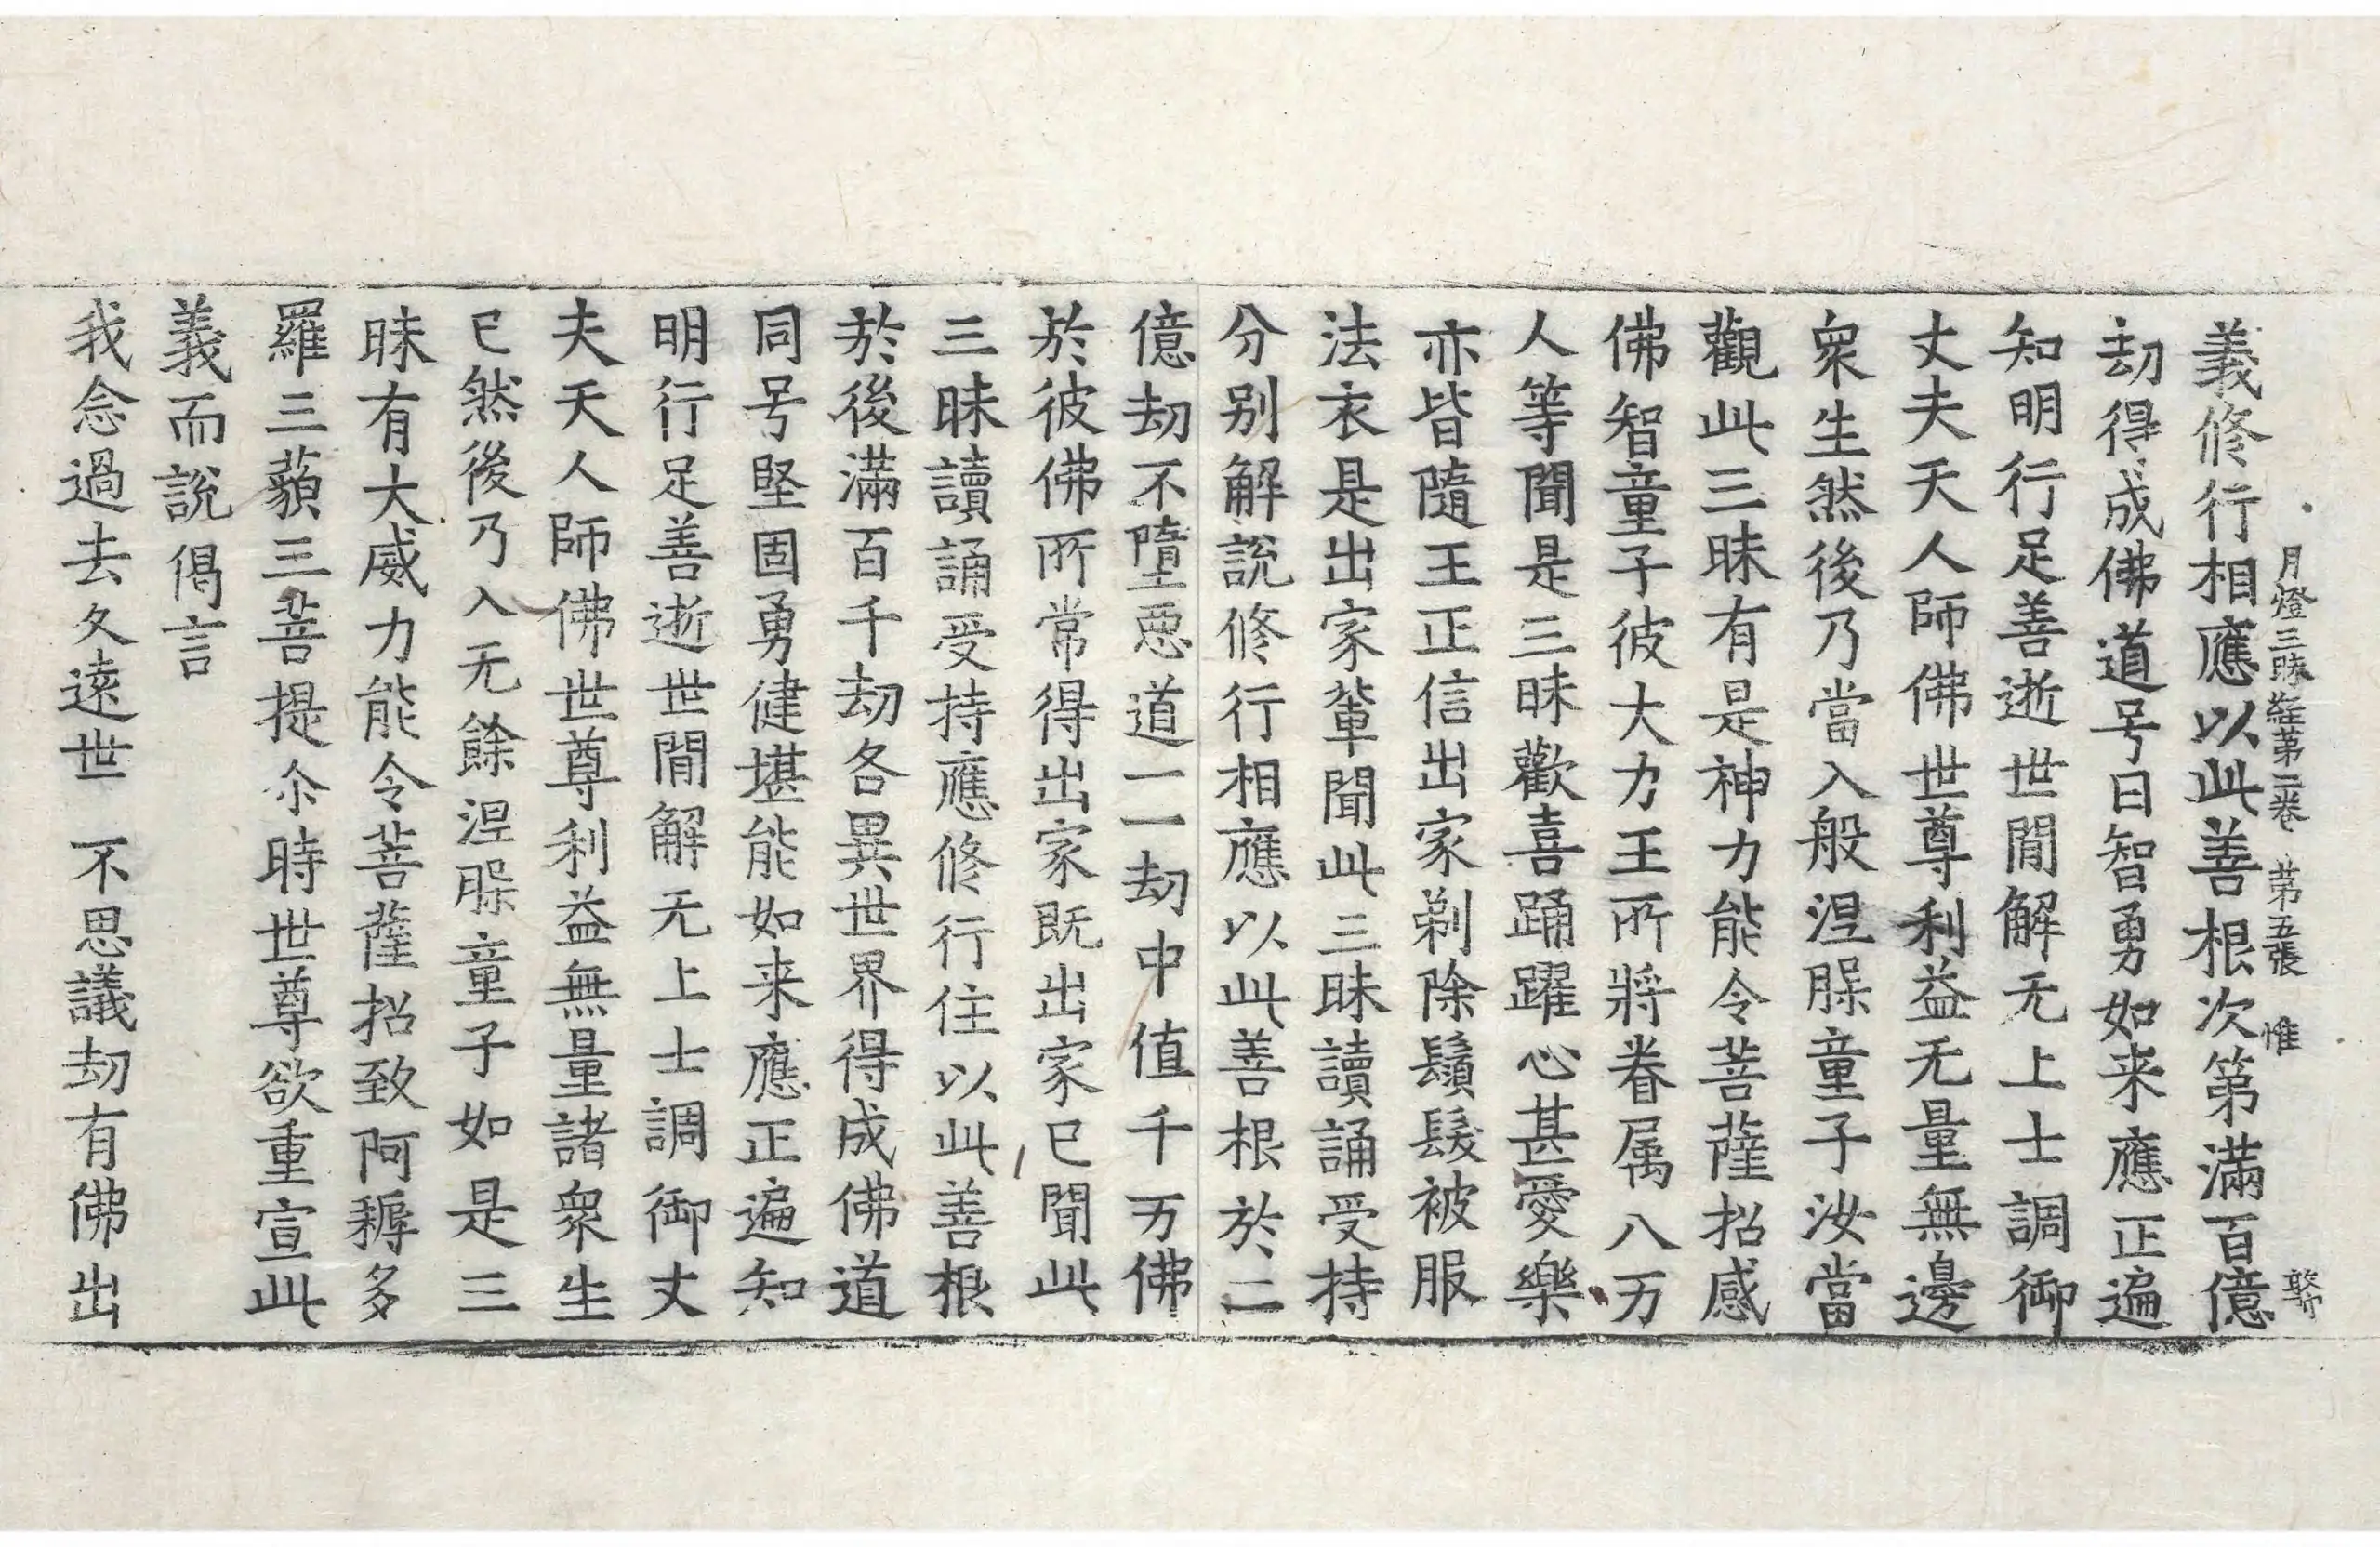 義修行相應以此善根次第滿百億
月燈三昧経第二卷 第五張 惟
劫得成佛道号曰智勇如来應正遍
知明行足善逝世閒解无上士調御
丈夫天人師佛世尊利益无量無邊
衆生然後乃當入般涅槃童子汝當
觀此三昧有是神力能令菩薩招感
佛智童子彼大力王所將眷属八万
人等聞是三昧歡喜踊躍心甚愛樂
亦皆隨王正信出家剃除鬚髮被服
法衣是出家輩聞此三昧讀誦受持
分別解說修行相應以此善根於二
億劫不墮惡道一一劫中值千万佛
於彼佛所常得出家既出家已聞此
三昧讀誦受持應修行住以此善根
於後滿百千劫各異世界得成佛道
同号堅固勇健堪能如来應正遍知
明行足善逝世閒解无上士調御丈
夫天人師佛世尊利益無量諸衆生
已然後乃入无餘涅槃童子如是三
昧有大威力能令菩薩招致阿耨多
羅三藐三菩提尒時世尊欲重宣此
義而說偈言
我念過去久遠世 不思議劫有佛出